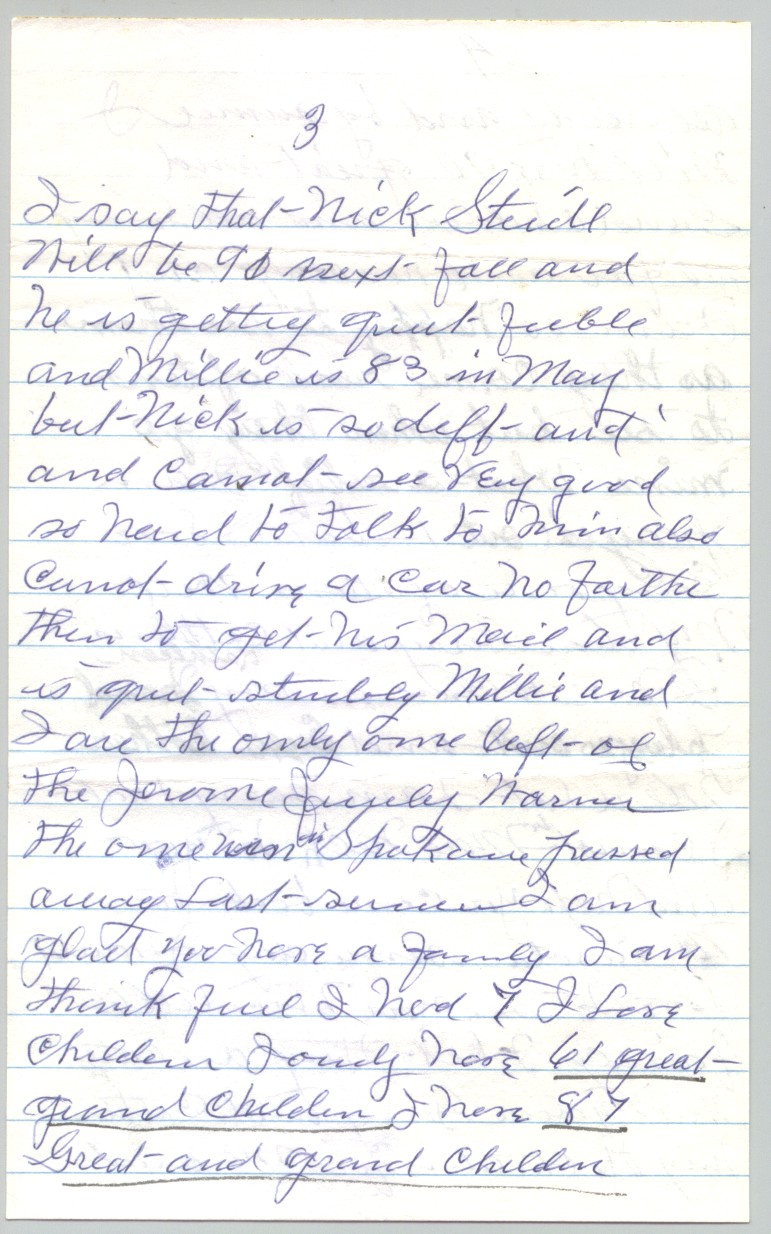 3
I say that Nick Steill
Will be 90 next fall and
he is getting quit feeble
and Millie is 83 in May
but Nick is so deff and
and Cannot see Very good
so hard to talk to him also
Canot drive a Car no farthe
then to get his Mail and
is quit stumbley Millie and
I are the only one left of
the Jerome Family Warner
the one in Spokane passed
away Last summer I am
glad you have a family I am
thank full I had 7 I Love
Children I only have 61 great
grand Children I have 87
Great and grand Children